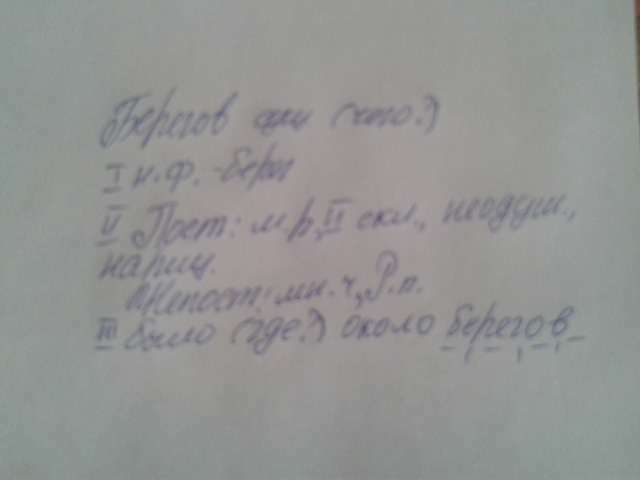 Берегов сущ (чего?)
I н.ф. - берег
II Пост: м.р, II скл., неодуш.,
нариц.
Непост: мн. ч, Р.п.
III было (где?) около берегов